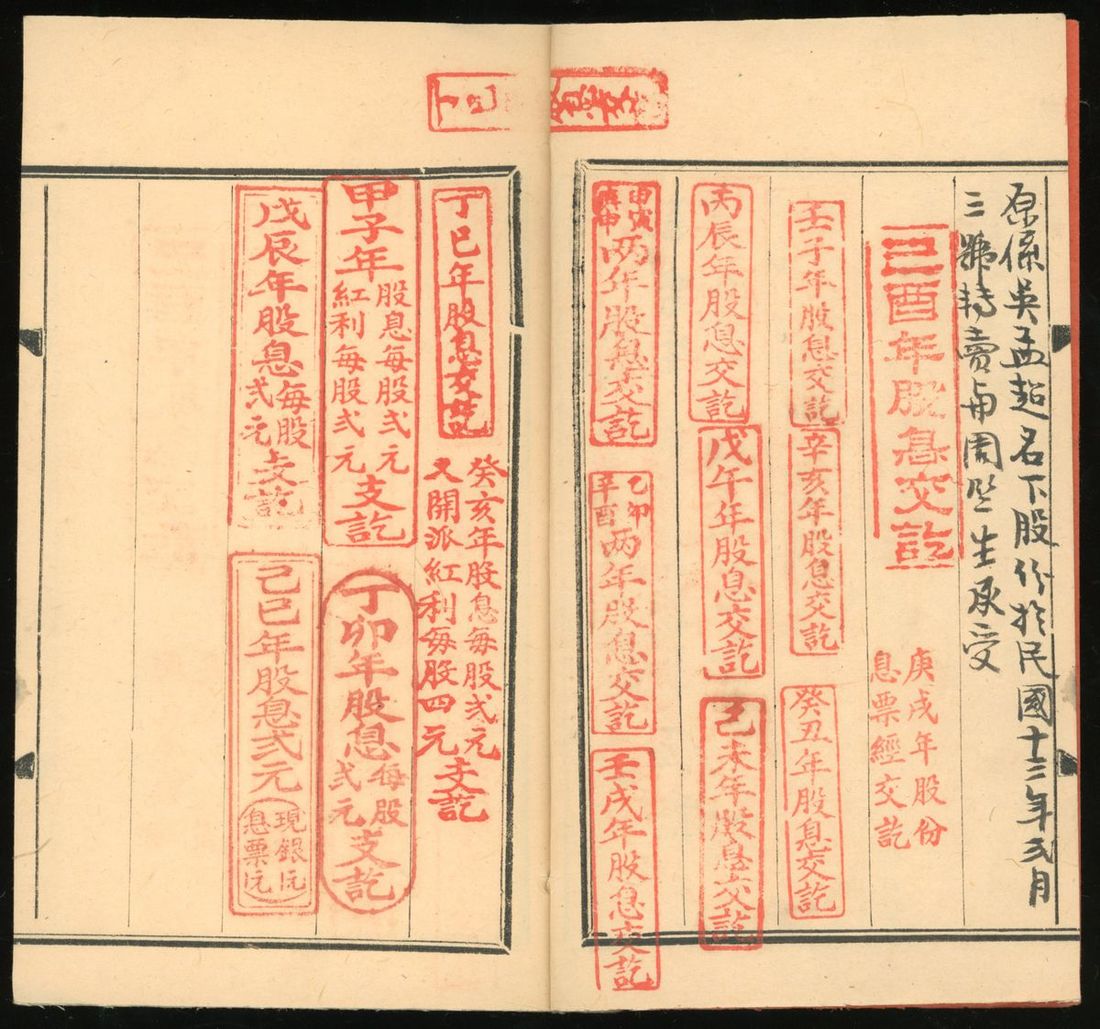 原係吳孟超名下股份於民國十二年弍月
三號賣與周生承受
己酉年股息交訖
庚戌年股份
息票經交訖
壬子年股息交訖
辛亥年股息交訖
癸丑年股息交訖
丙辰年股息交訖
戊午年股息交訖
己未年股息交訖
甲寅
庚申
两年股息交訖
乙卯
辛酉
两年股息交訖
壬戌年股息交訖
丁巳年股息支訖
癸亥年股息每股弍元
又開派紅利每股四元支訖
甲子年
股息每股弍元
紅利每股弍元
支訖
丁卯年股息
每股
弍元
支訖
戊辰年股息
每股
弍元
支訖
己巳年股息弍元
現銀
息票